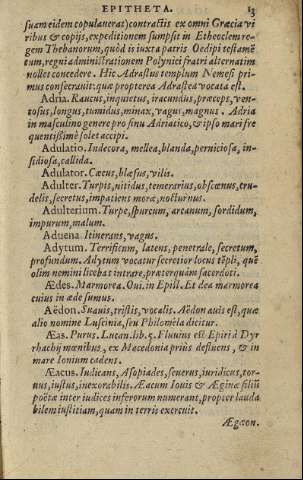 EPITHETA. 13
suam eidem copulauerat) contractis ex omni Græcia vi
ribus & copijs, expeditionem sumpsit in Etheoclem re-
gem Thebanorum, quòd is iuxta patris Oedipi testamē
tum, regni administrationem Polynici fratri alternatim
nollet concedere. Hic Adrastus templum Nemesi pri-
mus consecrauit: quæ propterea Adrastea vocata est.
Adria. Raucus, inquietus, iracundus, præceps, ven-
tosus, longus, tumidus, minax, vagus, magnus. Adria
in masculino genere pro sinu Adriatico, & ipso mari fre
quentissimè solet accipi.
Adulatio. Indecora, mellea, blanda, perniciosa, in-
sidiosa, callida.
Adulator. Cæcus, blæsus, vilis.
Adulter. Turpis, nitidus, temerarius, obscænus, cru-
delis, secretus, impatiens moræ, nocturnus.
Adulterium. Turpe, spurcum, arcanum, sordidum,
impurum, malum.
Aduena. Itinerans, vagus.
Adytum. Terrificum, latens, penetrale, secretum,
profundum. Adytum vocatur secretior locus tēpli, quē
olim nemini licebat intrare, præterquàm sacerdoti.
Ædes. Marmorea. Oui. in Epist. Et dea marmorea
cuius in æde sumus.
Aëdon. Suauis, tristis, vocalis. Aëdon auis est, quæ
alio nomine Luscinia, seu Philomela dicitur.
Æas. Purus. Lucan. lib. 5. Fluuius est Epiri à Dyr
rhachij mœnibus, ex Macedonia priùs defluens, & in
mare Ionium cadens.
Æacus. Iudicans, Asopiades, seuerus, iuridicus, tor-
uus, iustus, inexorabilis. Æacum Iouis & Æginæ filiū
poëtæ inter iudices inferorum numerant, propter lauda
bilem iustitiam, quam in terris exercuit.
Ægæon.